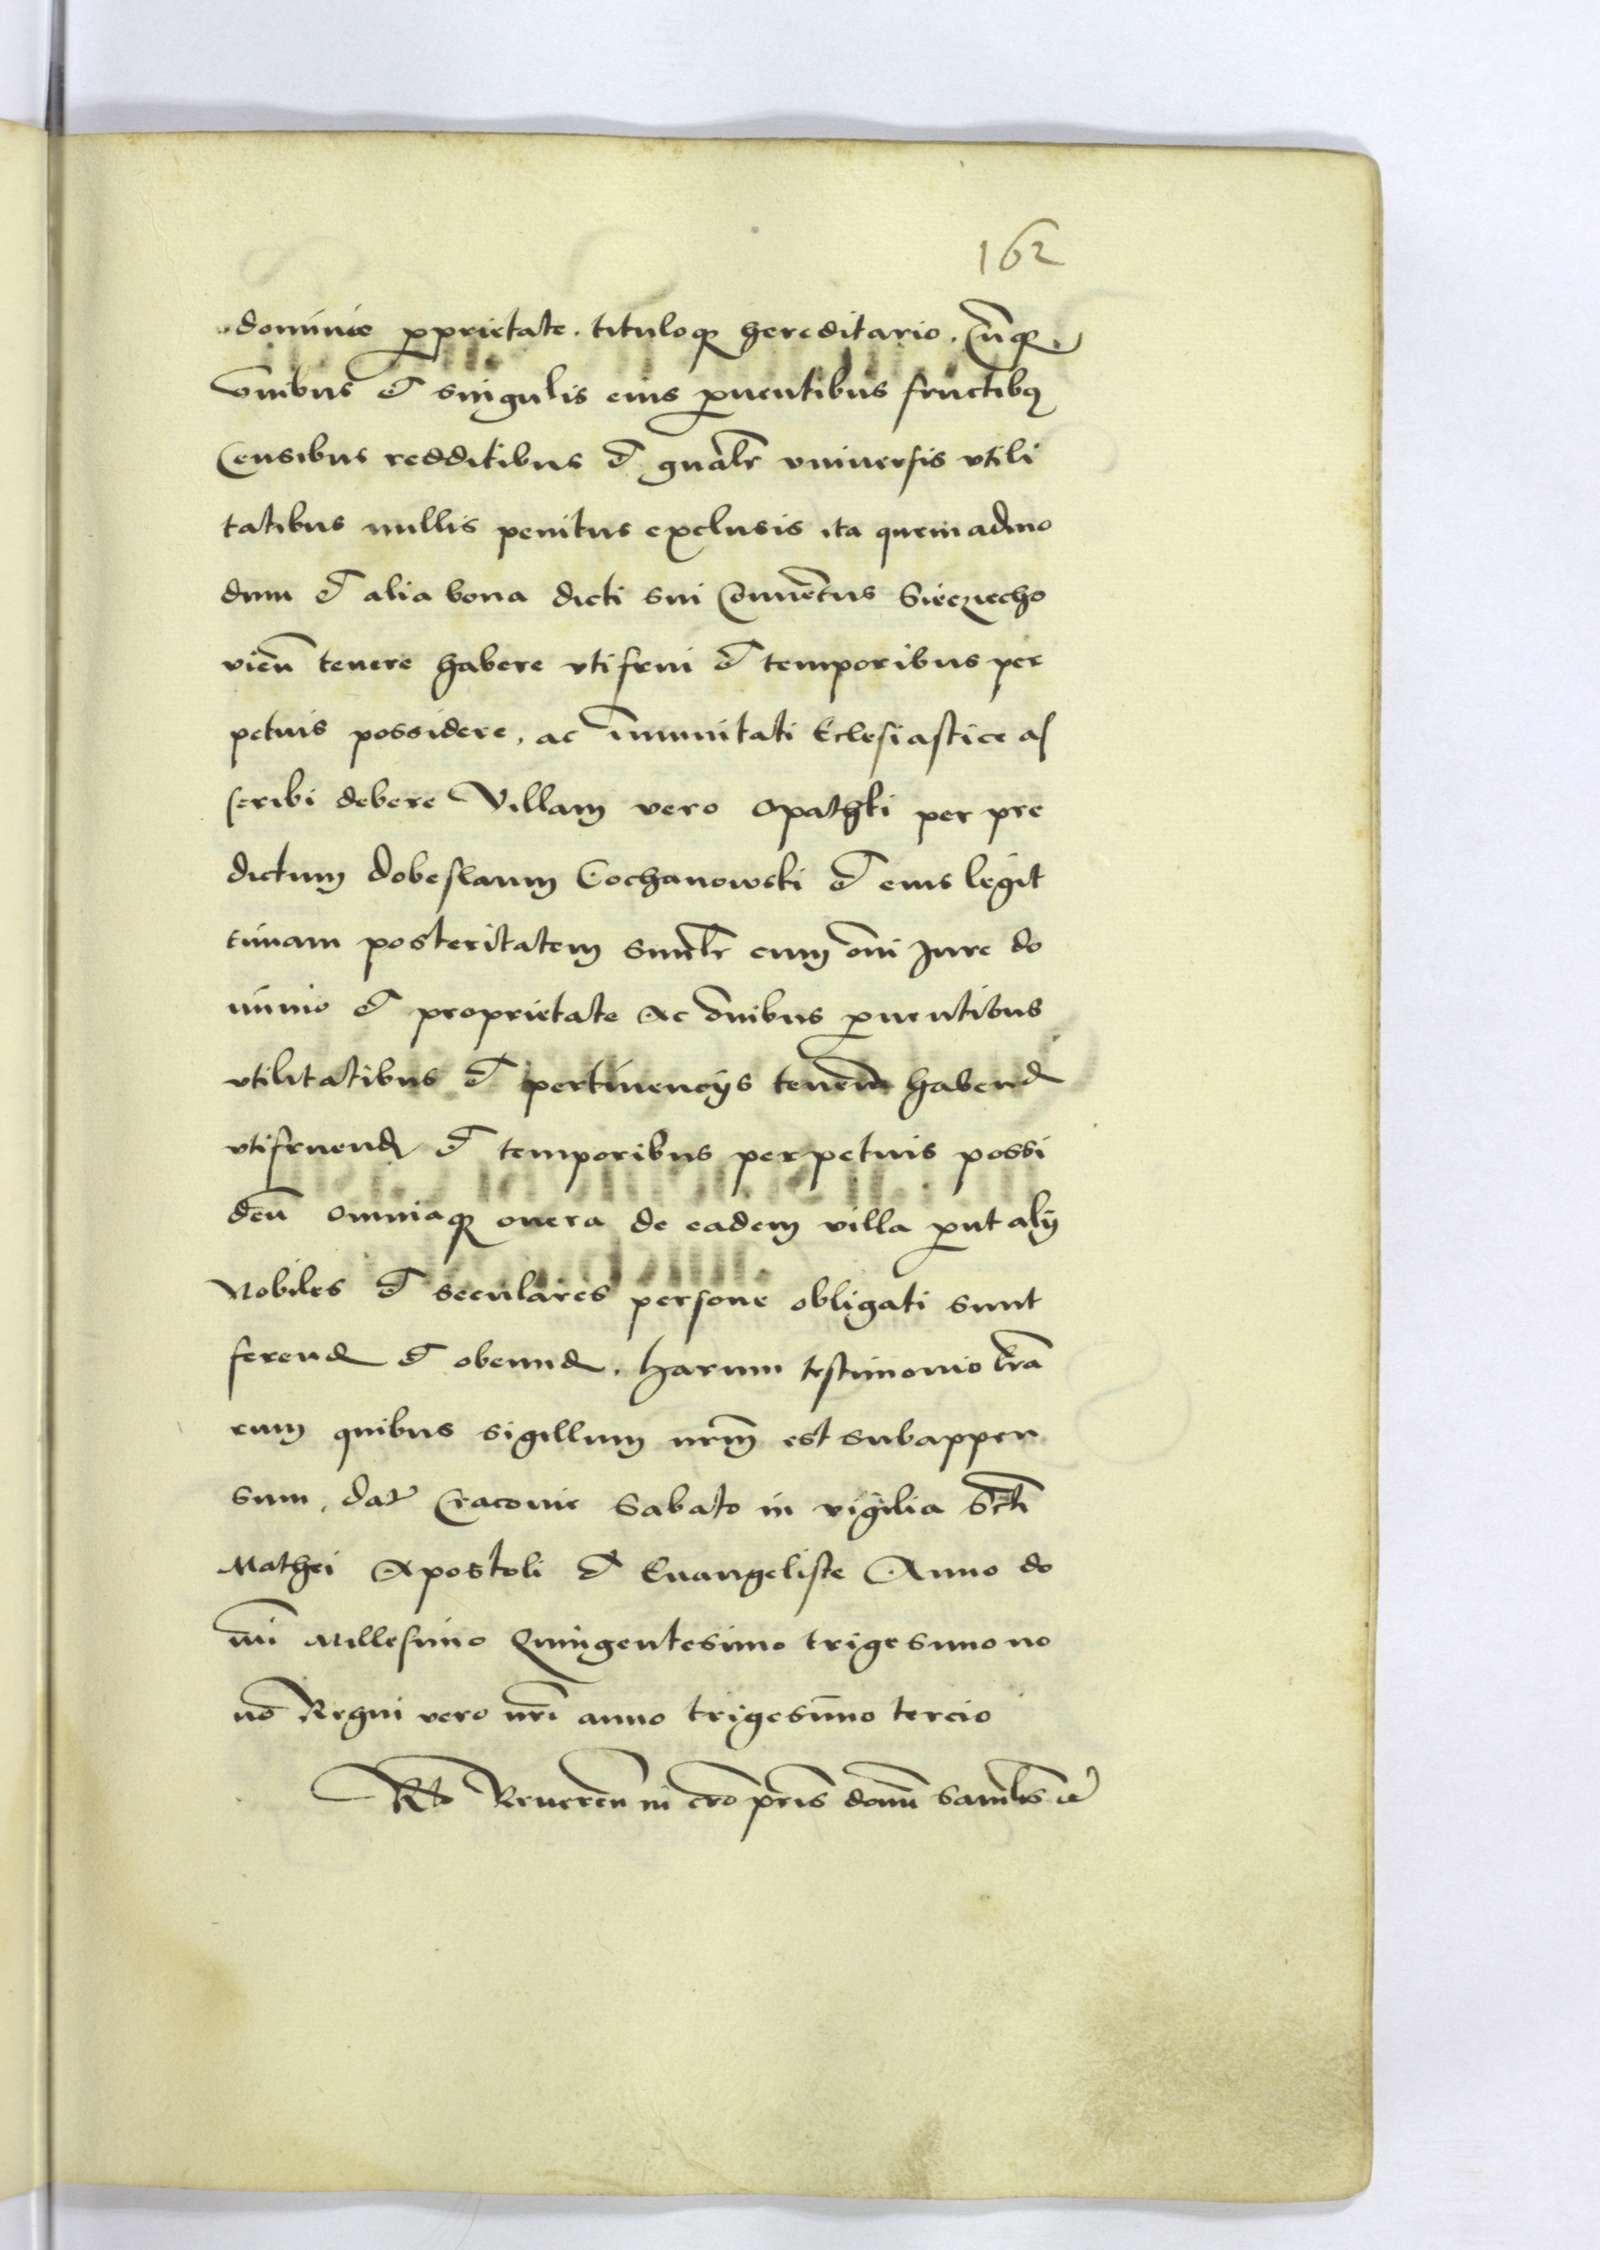 162
dominio ꝓprietate. tituloqꝫ hereditario. Cūqꝫ
ōnibus et singulis eius ꝓuentibus fructibꝯ
Censibus redditibus et gnāliter vniuersis vtili
tatibus nullis penitus exclusis ita quemadmo
dum et alia bona dicti sui Conuētus Sieczecho
vien̄ tenere habere vtifrui et temporibus per
petuis possidere, ac im̄unitati Eclesiastice as
scribi debere Villam vero Opathki per pre
dictum dobeslaum Cochanowski et eius legit
timam posteritatem simlr̄ cum om̄i Jure do
minio et proprietate ac om̄ibus ꝓuentibus
vtilitatibus et pertinencijs tenen̄ habend
vtifruend et temporibus perpetuis possi
den̄ omniaqꝫ onera de eadem villa ꝓut alij
Nobiles et seculares persone obligati sunt
ferend et obeund. harum testimonio lr̄a
rum quibus sigillum nrm̄ est subappen
sum, dat Cracouie Sabato in vigilia Scti
Mathei Apostoli et Euangeliste Anno do
mi millesimo Quingentesimo trigesimo no
no Regni vero nrī anno trigesimo tercio
Reueren̄ in cro pris̄ dom̄ Samlis